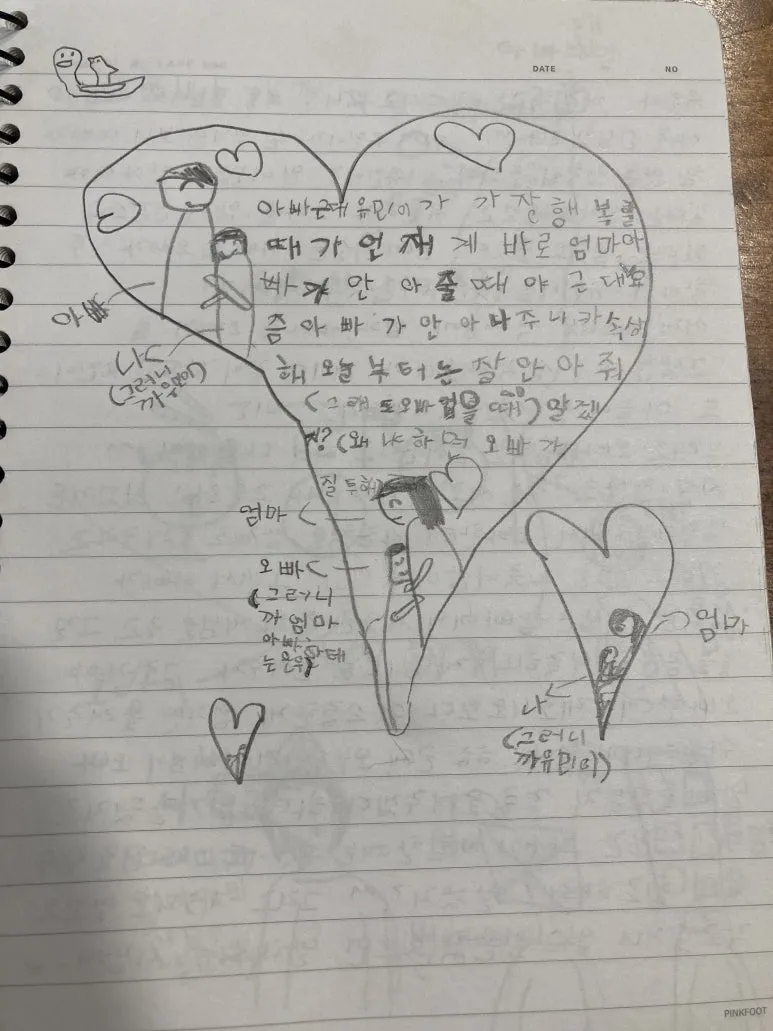 DATE
NO
아빠근대유민이가 가 잘 행 복할
때 가 언 재 게 바로 엄마아
빠 가 안 아 줄 때 야 근 대 요
즘 아 빠 가 안 아 나 주 니 카 속상
해 오늘 부 터 는 잘 안 아 줘
(그 래 도 오빠 업을 때 (알겠
지? (왜 냐 하 며 오 빠 가
질 투 해
빠아
나
(그러니
까유민이)
엄마
오빠
(그러니
까 엄마
아빠 한테
는
엄마
나
(그러니
까유민이)
PINKFOOT